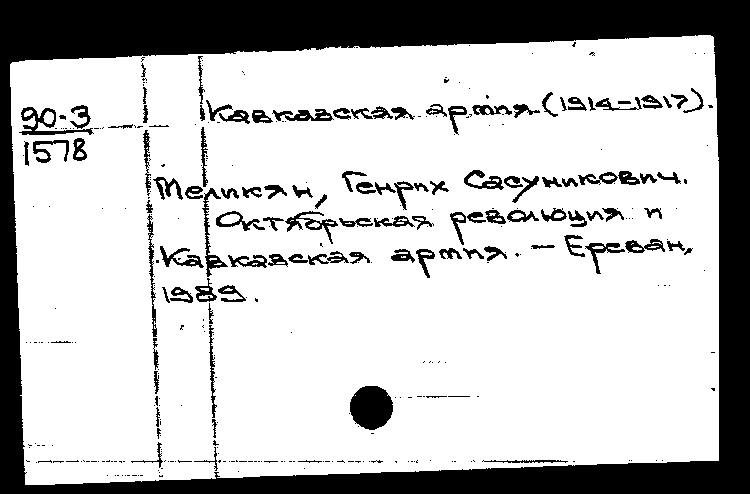 Кавказская армия (1914-1917).
90-3
1578
Меликян, Генрих Сасуникович.
Октябрьская революция и
Кавказская армия. — Ереван,
1989.